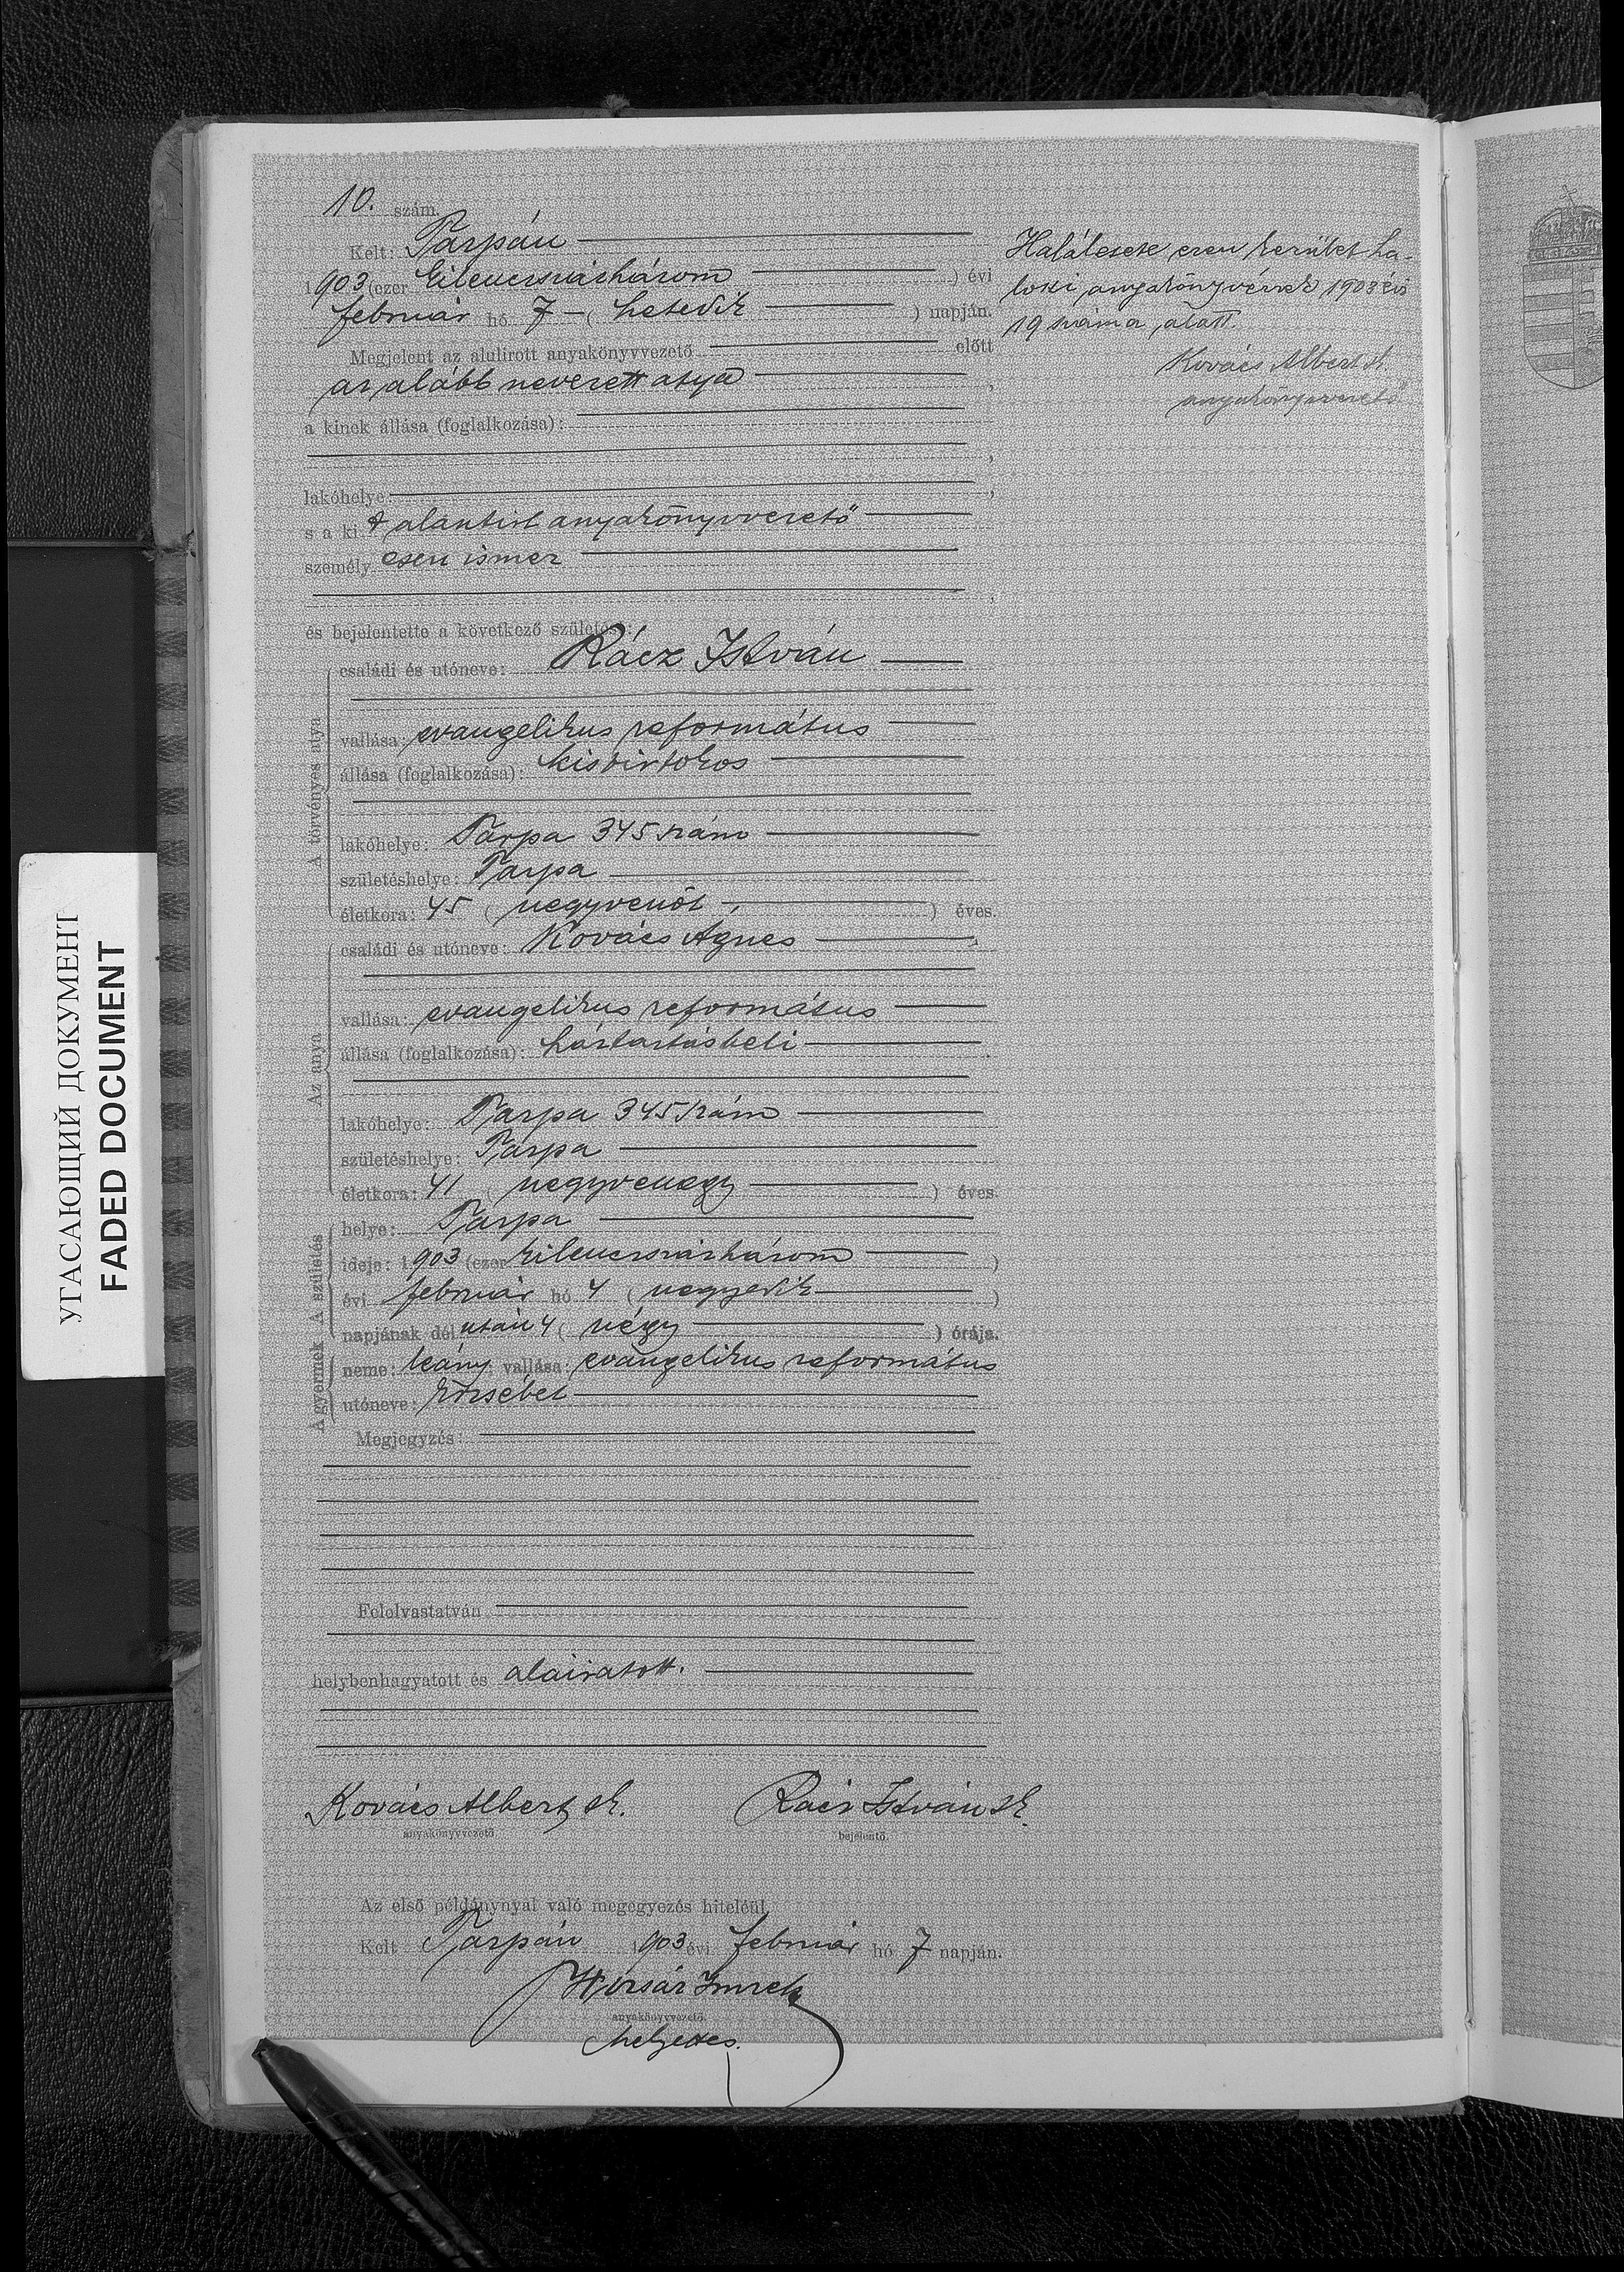 10. szám.
Kelt: Tarpán
1903 (ezer kilencszázhárom ) évi
február hó 7 – ( hetedik ) napján.
Megjelent az alulirott anyakönyvvezető előtt
az alább nevezett atya ,
a kinek állása (foglalkozása):
,
lakóhelye ,
s a ki t alantirt anyakönyvvezető
személy esen ismer
,
és bejelentette a következő születést:
A törvényes atya
családi és utóneve: Rácz István
vallása: evangelikus református
állása (foglalkozása): kisbirtokos
lakóhelye: Tarpa 345 szám
születéshelye: Tarpa
életkora: 45 ( negyvenöt ) éves.
Az anya
családi és utóneve: Kovács Ágnes
vallása: evangelikus református
állása (foglalkozása): háztartásbeli
lakóhelye: Tarpa 345 szám
születéshelye: Tarpa
életkora: 41 ( negyvenegy ) éves.
A születés
helye: Tarpa
ideje: 1903 (ezer kilencszázhárom )
évi február hó 4 ( negyedik )
napjának dél után 4 ( négy ) órája.
A gyermek
neme: leány vallása: evangelikus református
utóneve: Erzsébet
Megjegyzés:
Felolvastatván
helybenhagyatott és aláiratott.
Kovács Albert sk. Rácz István sk.
anyakönyvvezető bejelentő.
Az első példánynyal való megegyezés hiteléül.
Kelt Tarpán 1903 évi február hó 7 napján.
Imreh
anyakönyvvezető.
helyettes.
Halálesete ezen kerület ha-
lotti anyakönyvének 1903 évi
19 száma alatt.
Kovács Albert sk.
anyakönyvvezető
УГАСАЮЩИЙ ДОКУМЕНТ
FADED DOCUMENT